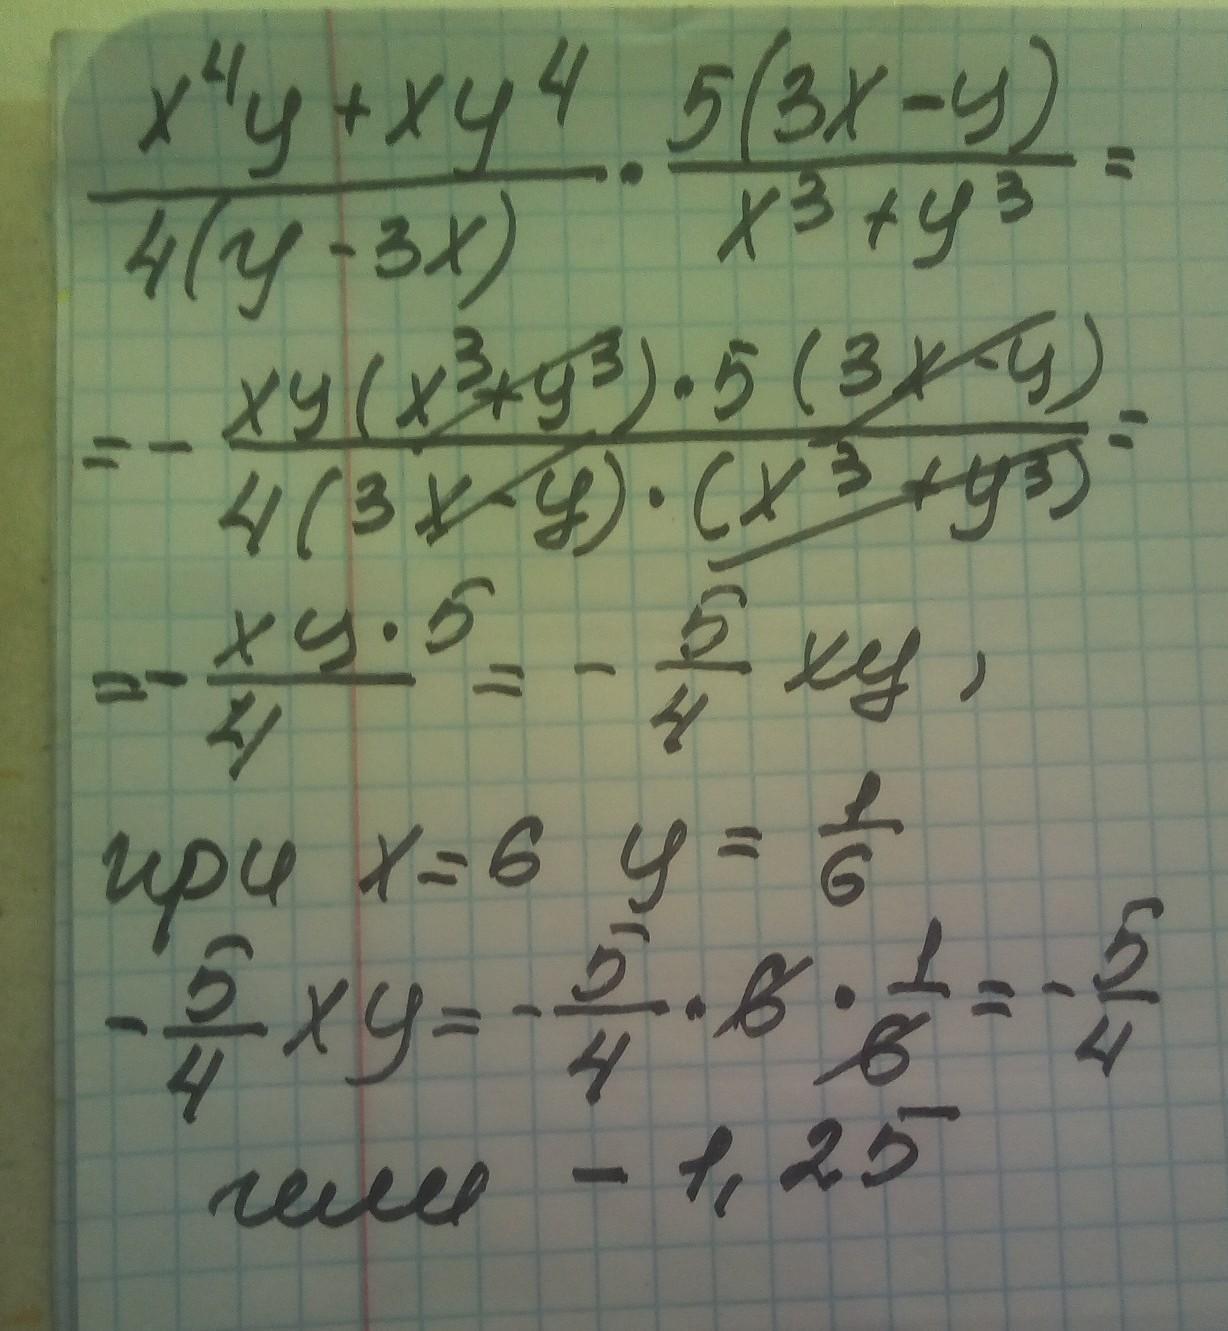 (x⁴y + xy⁴)/(4(y - 3x)) · (5(3x - y))/(x³ + y³) =
= - (xy(x³ + y³) · 5(3x - y))/(4(3x - y) · (x³ + y³)) =
= - (xy · 5)/4 = - 5/4 xy ,
при x = 6 y = 1/6
- 5/4 xy = - 5/4 · 6 · 1/6 = - 5/4
или - 1,25